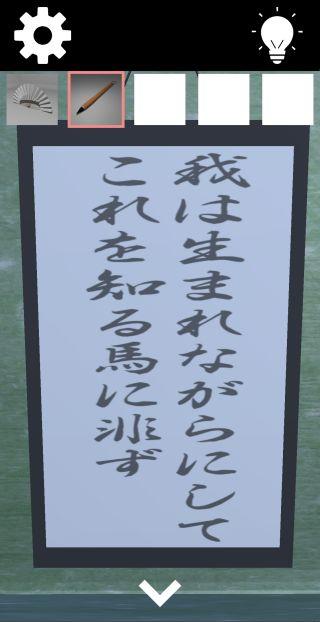 我は生まれながらにして
これを知る馬に非ず